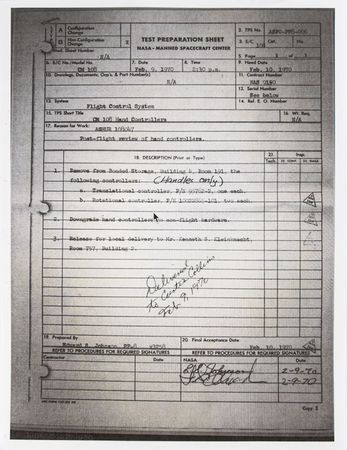 A Configuration Change
B Non-Configuration Change
X
TEST PREPARATION SHEET
NASA - MANNED SPACECRAFT CENTER
2. TPS No.
3. S/C
108
Cat.
Mod. Sheet Number
N/A
5. Page 1 of 1
6. S/C No./Model No.
CM 108
7. Date
Feb. 9, 1970
8. Time
2:30 p.m.
9. Need Date
Feb. 10, 1970
10. Drawings, Documents, Ocp's, & Part Number(s)
N/A
11. Contract Number
NAS 9150
12. Serial Number
See below
13. System
Flight Control System
14. Ref. E. O. Number
15. TPS Short Title
CM 108 Hand Controllers
16. Wt. Req.
N/A
17. Reason for Work:
Post-flight review of hand controllers.
18. DESCRIPTION (Print or Type)
21. Insp.
Tech.
1. Remove from Bonded Storage, Building 4, Room 191, the
following controllers: (Handles only)
a. Translational controller, P/N 95762-2, one each.
b. Rotational controller, P/N 10022865-101, two each.
2. Downgrade hand controllers to non-flight hardware.
3. Release for local delivery to Mr. Kenneth S. Kleinknecht,
Room 757, Building 2.
Delivered
to Curator Collins
Feb 9, 1970
19. Prepared By
Edward B. Johnson
20. Final Acceptance Date
Feb. 10, 1970
REFER TO PROCEDURES FOR REQUIRED SIGNATURES
REFER TO PROCEDURES FOR REQUIRED SIGNATURES
Contractor
Date
NASA
Date
2-9-70
2-9-70